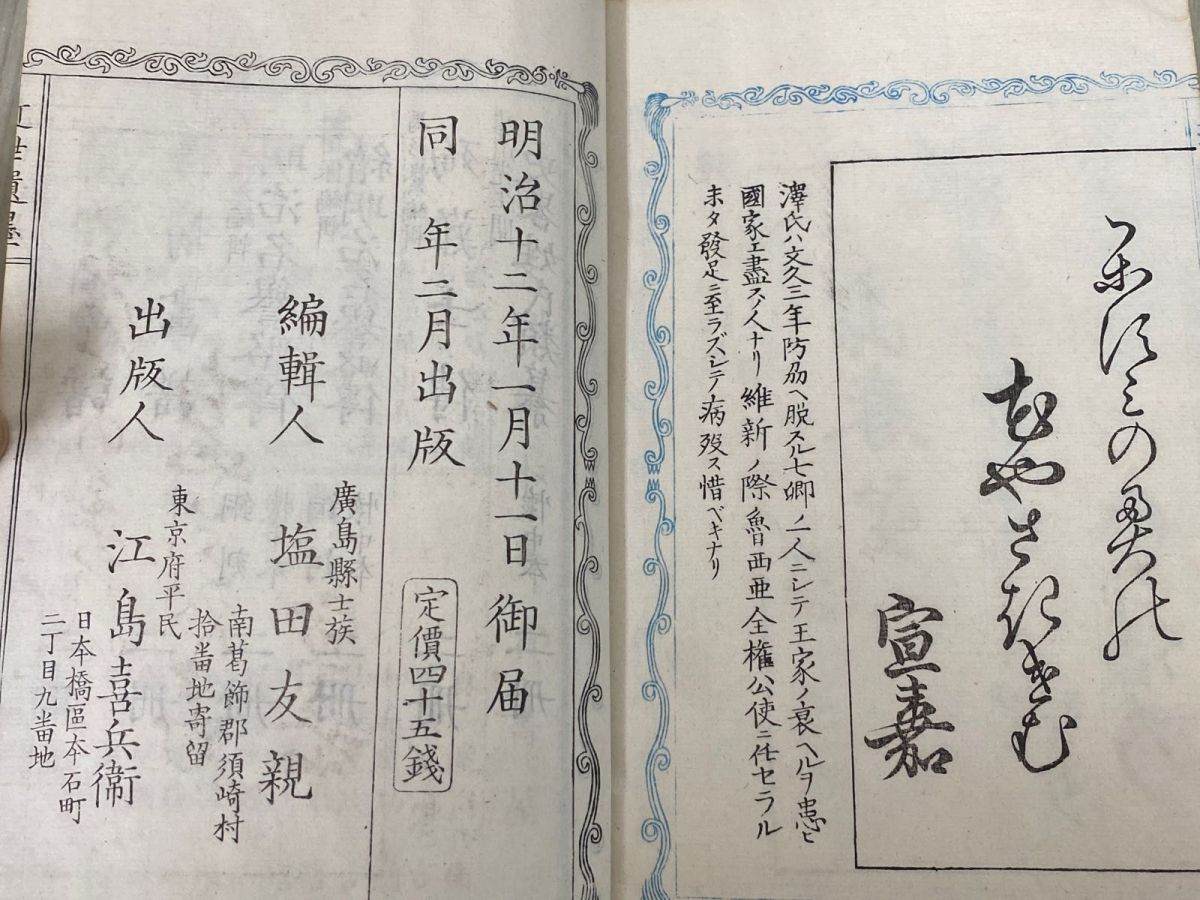 宣嘉
澤氏ハ文久三年防刕ヘ脱スル七卿ノ一人ニシテ王家ノ衰ヘルヲ患ヒ
國家エ盡スノ人ナリ維新ノ際魯西亜全権公使ニ任セラル
未タ發足ニ至ラズシテ病歿ス惜ベキナリ
明治十二年一月十一日御届
同年二月出版
定價四十五錢
編輯人
廣島縣士族
塩田友親
南葛飾郡須崎村
拾畨地寄留
出版人
東京府平民
江島喜兵衞
日本橋區本石町
二丁目九畨地